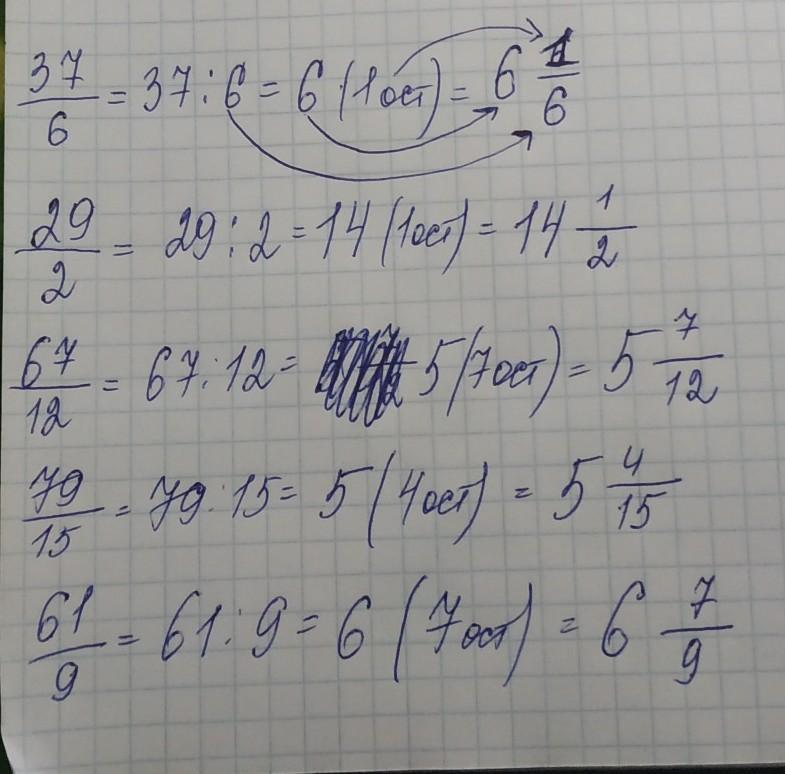 37/6 = 37 : 6 = 6 (1 ост) = 6 1/6
29/2 = 29 : 2 = 14 (1 ост) = 14 1/2
67/12 = 67 : 12 = 5 (7 ост) = 5 7/12
79/15 = 79 : 15 = 5 (4 ост) = 5 4/15
61/9 = 61 : 9 = 6 (7 ост) = 6 7/9